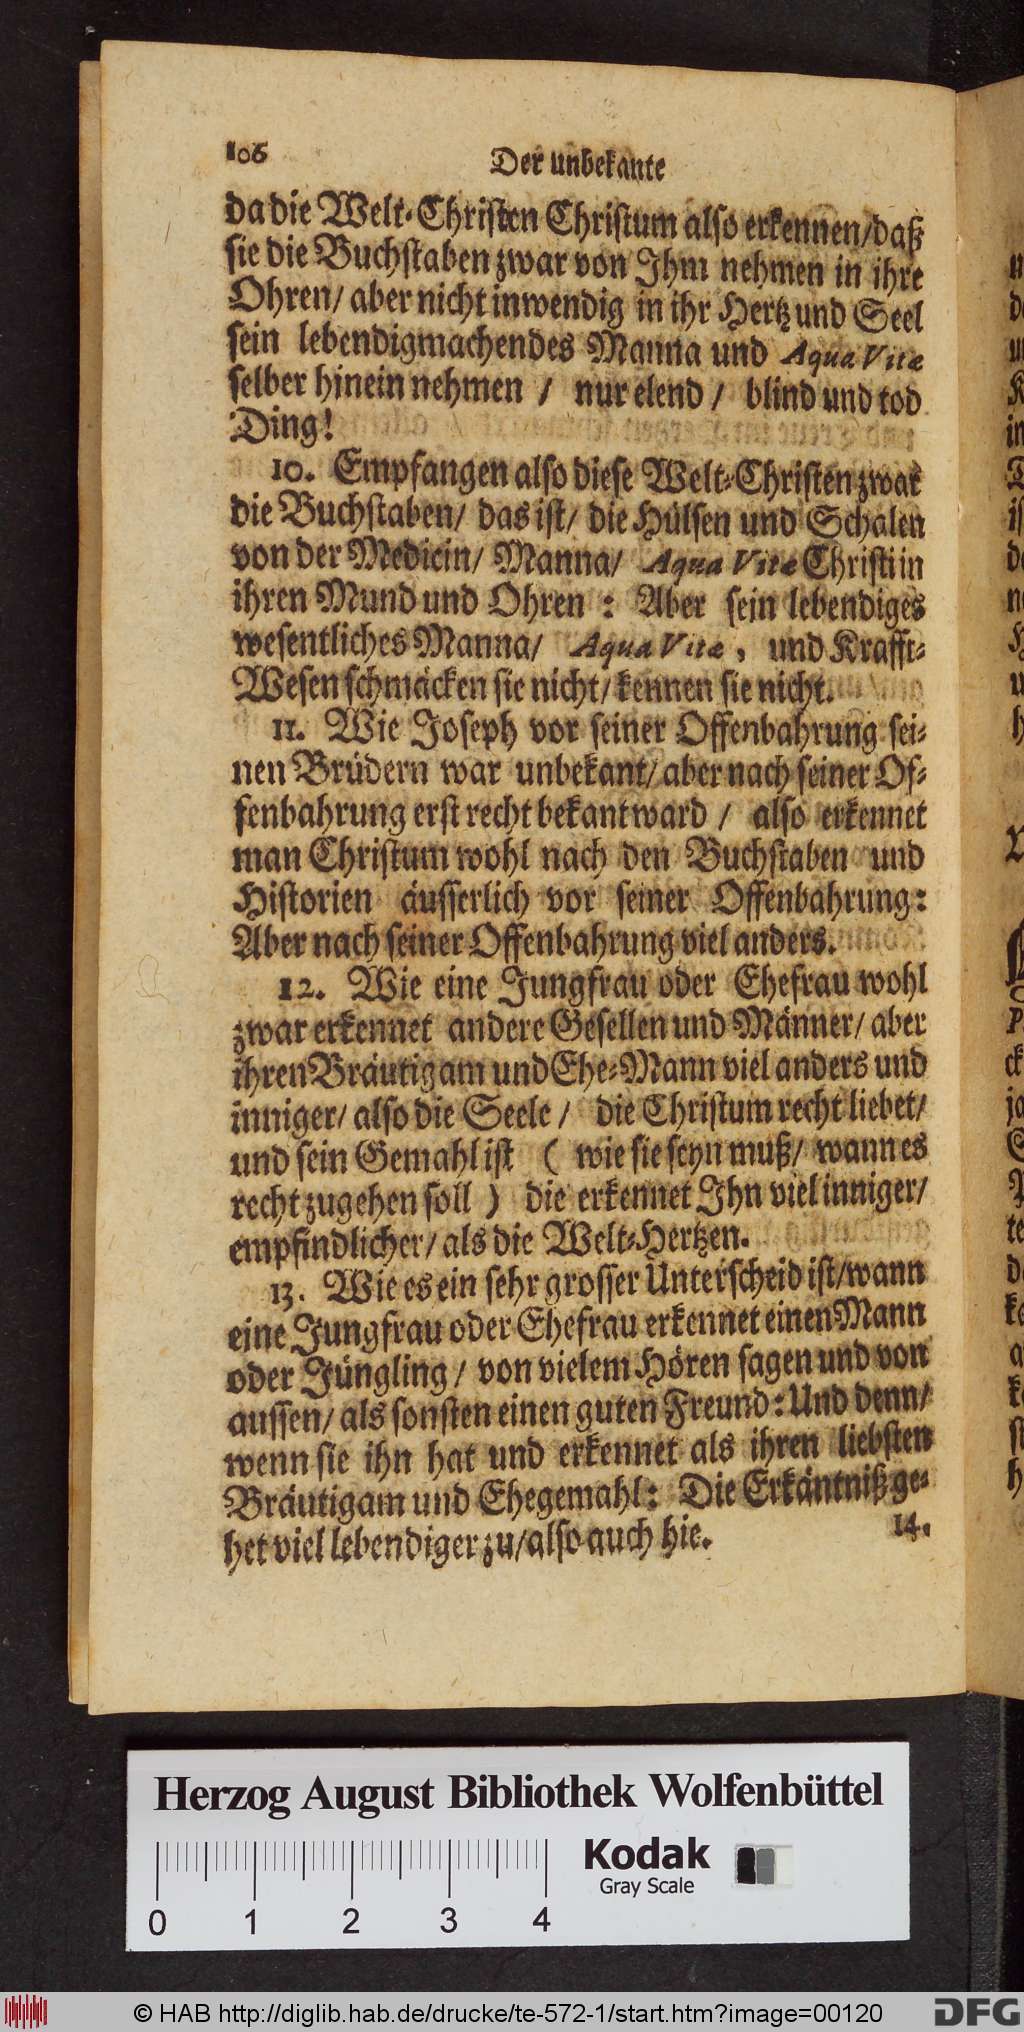 106
Der unbekante
da die Welt-Christen Christum also erkennen/daß
sie die Buchstaben zwar von Ihm nehmen in ihre
Ohren/ aber nicht inwendig in ihr Hertz und Seel
sein lebendigmachendes Manna und Aqua Vitæ
selber hinein nehmen / nur elend / blind und tod
Ding!
10. Empfangen also diese Welt-Christen zwar
die Buchstaben/ das ist/ die Hülsen und Schalen
von der Medicin/ Manna/ Aqua Vitæ Christi in
ihren Mund und Ohren : Aber sein lebendiges
wesentliches Manna/ Aqua Vitæ, und Krafft-
Wesen schmäcken sie nicht/ kennen sie nicht.
11. Wie Joseph vor seiner Offenbahrung sei-
nen Brüdern war unbekant/ aber nach seiner Of-
fenbahrung erst recht bekant ward / also erkennet
man Christum wohl nach den Buchstaben und
Historien äusserlich vor seiner Offenbahrung:
Aber nach seiner Offenbahrung viel anders.
12. Wie eine Jungfrau oder Ehefrau wohl
zwar erkennet andere Gesellen und Männer/ aber
ihren Bräutigam und Ehe-Mann viel anders und
inniger/ also die Seele / die Christum recht liebet/
und sein Gemahl ist ( wie sie seyn muß/ wann es
recht zugehen soll ) die erkennet Ihn viel inniger/
empfindlicher/ als die Welt-Hertzen.
13. Wie es ein sehr grosser Unterscheid ist/wann
eine Jungfrau oder Ehefrau erkennet einen Mann
oder Jüngling / von vielem Hören sagen und von
aussen/ als sonsten einen guten Freund: Und denn/
wenn sie ihn hat und erkennet als ihren liebsten
Bräutigam und Ehegemahl: Die Erkäntniß ge-
het viel lebendiger zu/also auch hie.
14.
Herzog August Bibliothek Wolfenbüttel
Kodak
Gray Scale
0 1 2 3 4
© HAB http://diglib.hab.de/drucke/te-572-1/start.htm?image=00120
DFG